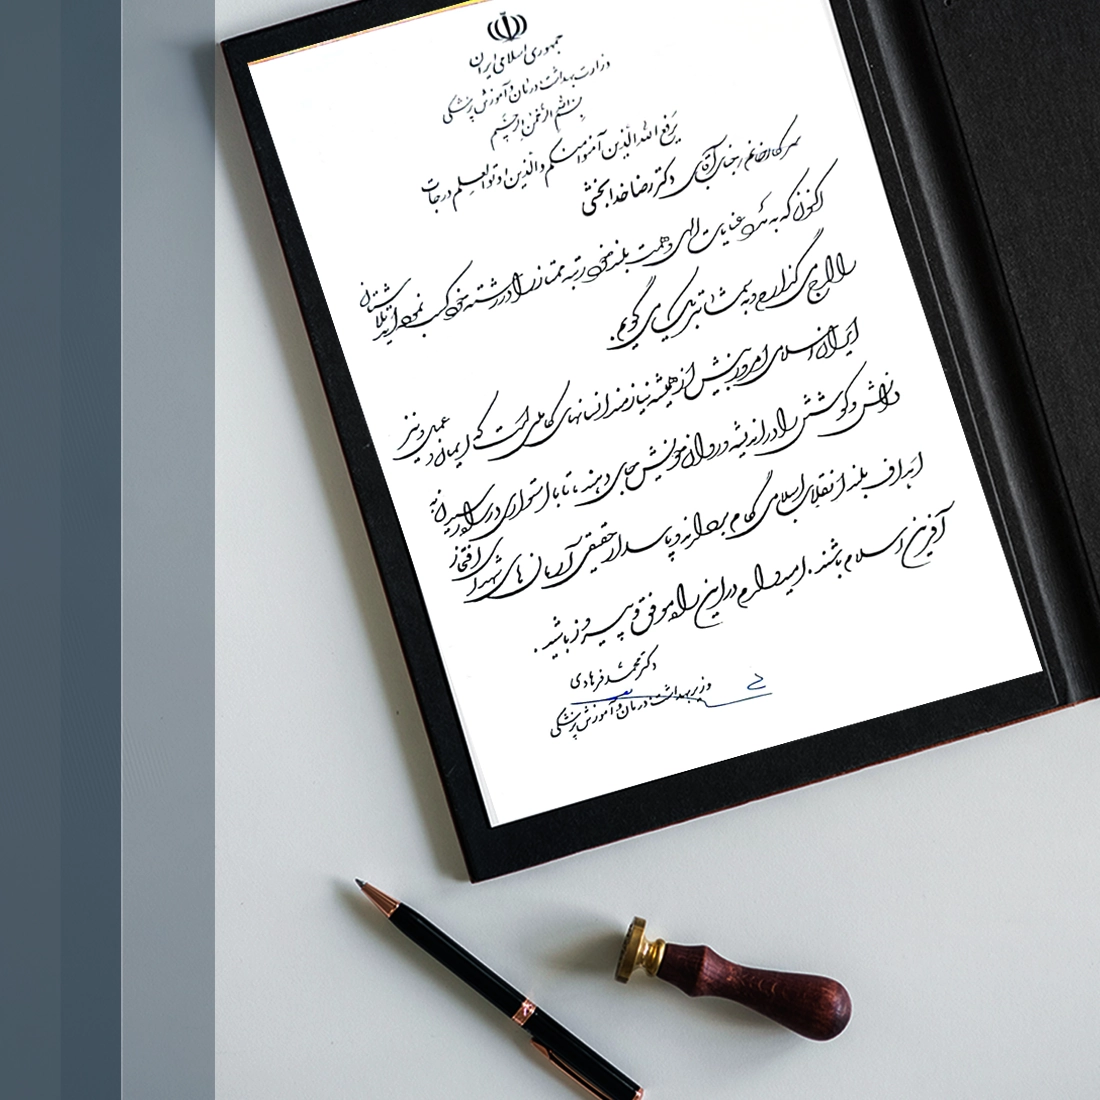 جمهوری اسلامی ایران
وزارت بهداشت درمان و آموزش پزشکی
بسم الله الرحمن الرحیم
یرفع الله الذین آمنوا منکم والذین اوتوا العلم درجات
سرکار خانم / جناب آقای دکتر رضا خدابخشی
اکنون که به مدد عنایات الهی و همت بلند خود رتبه ممتاز را در رشته خود کسب نموده اید تلاشتان
را ارج می گذارم و به شما تبریک می گویم.
ایران اسلامی امروز بیش از همیشه نیازمند انسانهای کاملی است که ایمان و عمل و نیز
دانش و کوشش را در اندیشه و روان خویش جای دهند، تا با استواری در راه رسیدن به
اهداف بلند انقلاب اسلامی گام بردارند و پاسدار حقیقی آرمان های شهدای افتخار
آفرین اسلام باشند. امیدوارم در این راه موفق و پیروز باشید.
دکتر محمد فرهادی
وزیر بهداشت درمان و آموزش پزشکی